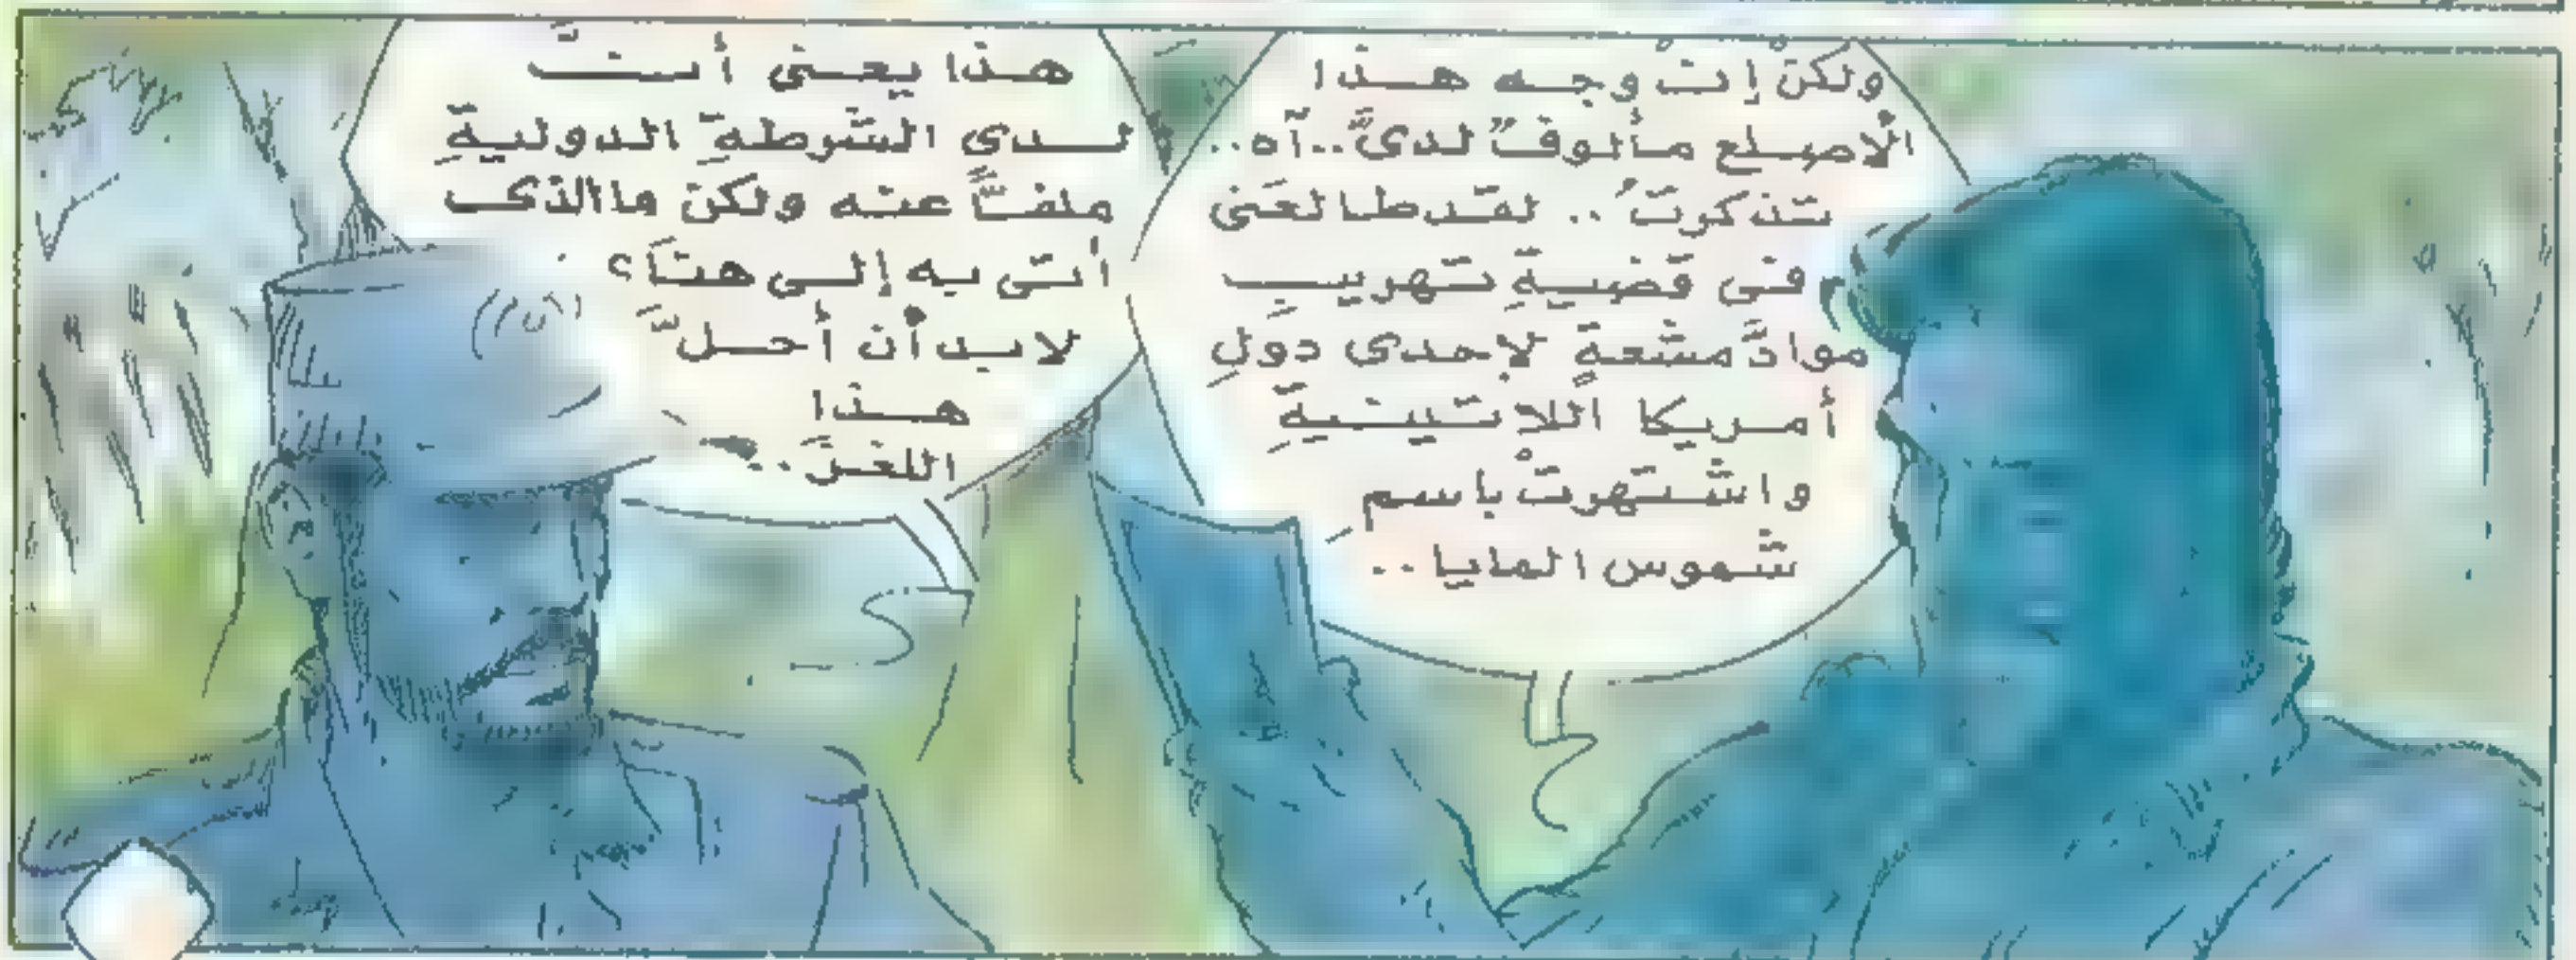 ولكنْ إنّ وجه هـذا
الأصـلع مـألوفٌ لديَّ..آه..
تـذكرتُ.. لقـد طـالعَني
في قضيـةِ تـهريبِ
موادَّ مشعةٍ لإحدى دولِ
أمـريكا اللاتـينـيةِ
واشـتهرتْ باسمِ
شـموس المايا..
هـذا يعـني أنَّ
لـدى الشرطةِ الدوليةِ
ملفـّاً عنه ولكن ما الذي
أتى به إلـى هنـَا؟
لابـد أن أحـلَّ
هـذا
اللغـزَ..